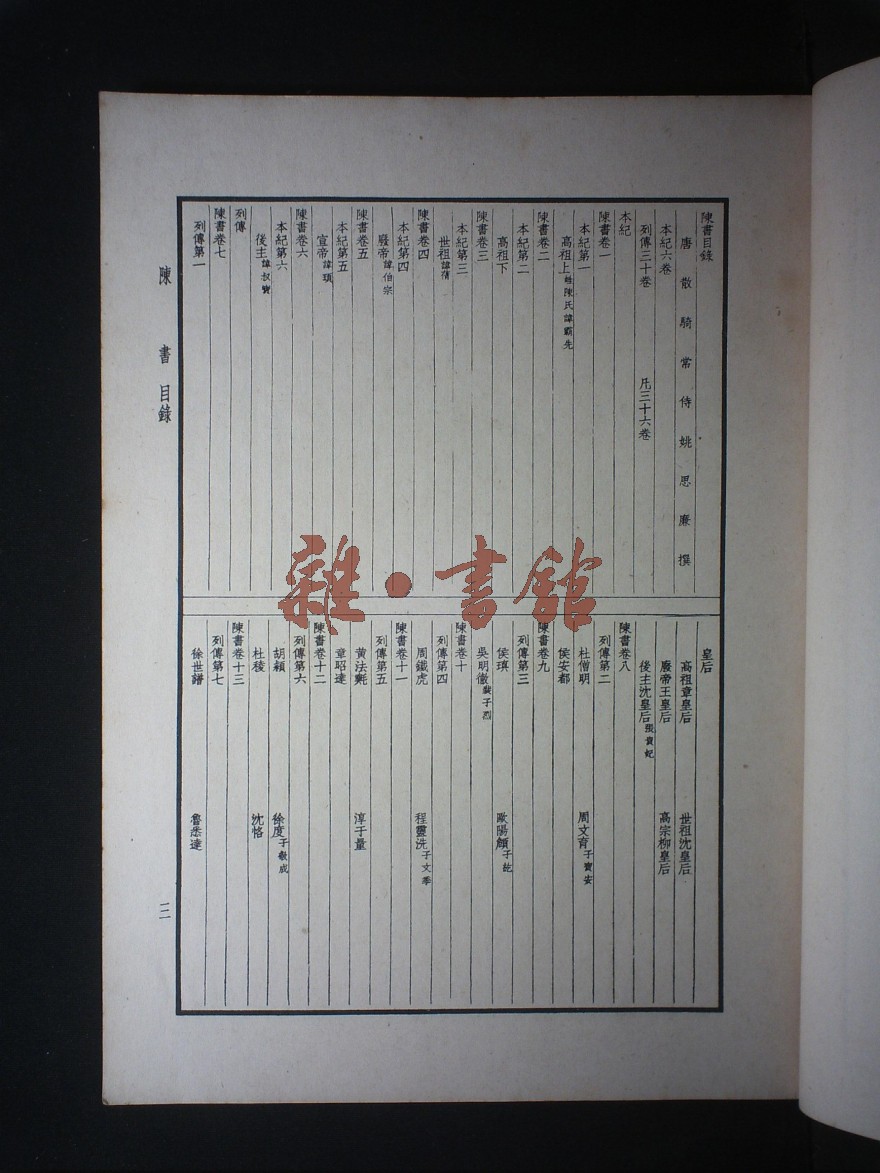 陳書目錄
唐散騎常侍姚思廉撰
本紀六卷
列傳三十卷 凡三十六卷
本紀
陳書卷一
本紀第一
高祖上姓陳氏諱霸先
陳書卷二
本紀第二
高祖下
陳書卷三
本紀第三
世祖諱蒨
陳書卷四
本紀第四
廢帝諱伯宗
陳書卷五
本紀第五
宣帝諱頊
陳書卷六
本紀第六
後主諱叔寶
列傳
陳書卷七
列傳第一
皇后
高祖章皇后 世祖沈皇后
廢帝王皇后 高宗柳皇后
後主沈皇后張貴妃
陳書卷八
列傳第二
杜僧明 周文育子寶安
侯安都
陳書卷九
列傳第三
侯瑱 歐陽頠子紇
吳明徹裴子烈
陳書卷十
列傳第四
周鐵虎 程靈洗子文季
陳書卷十一
列傳第五
黃法𣰰 淳于量
章昭達
陳書卷十二
列傳第六
胡穎 徐度子敬成
杜稜 沈恪
陳書卷十三
列傳第七
徐世譜 魯悉達
陳書 目錄
三
雜·書館